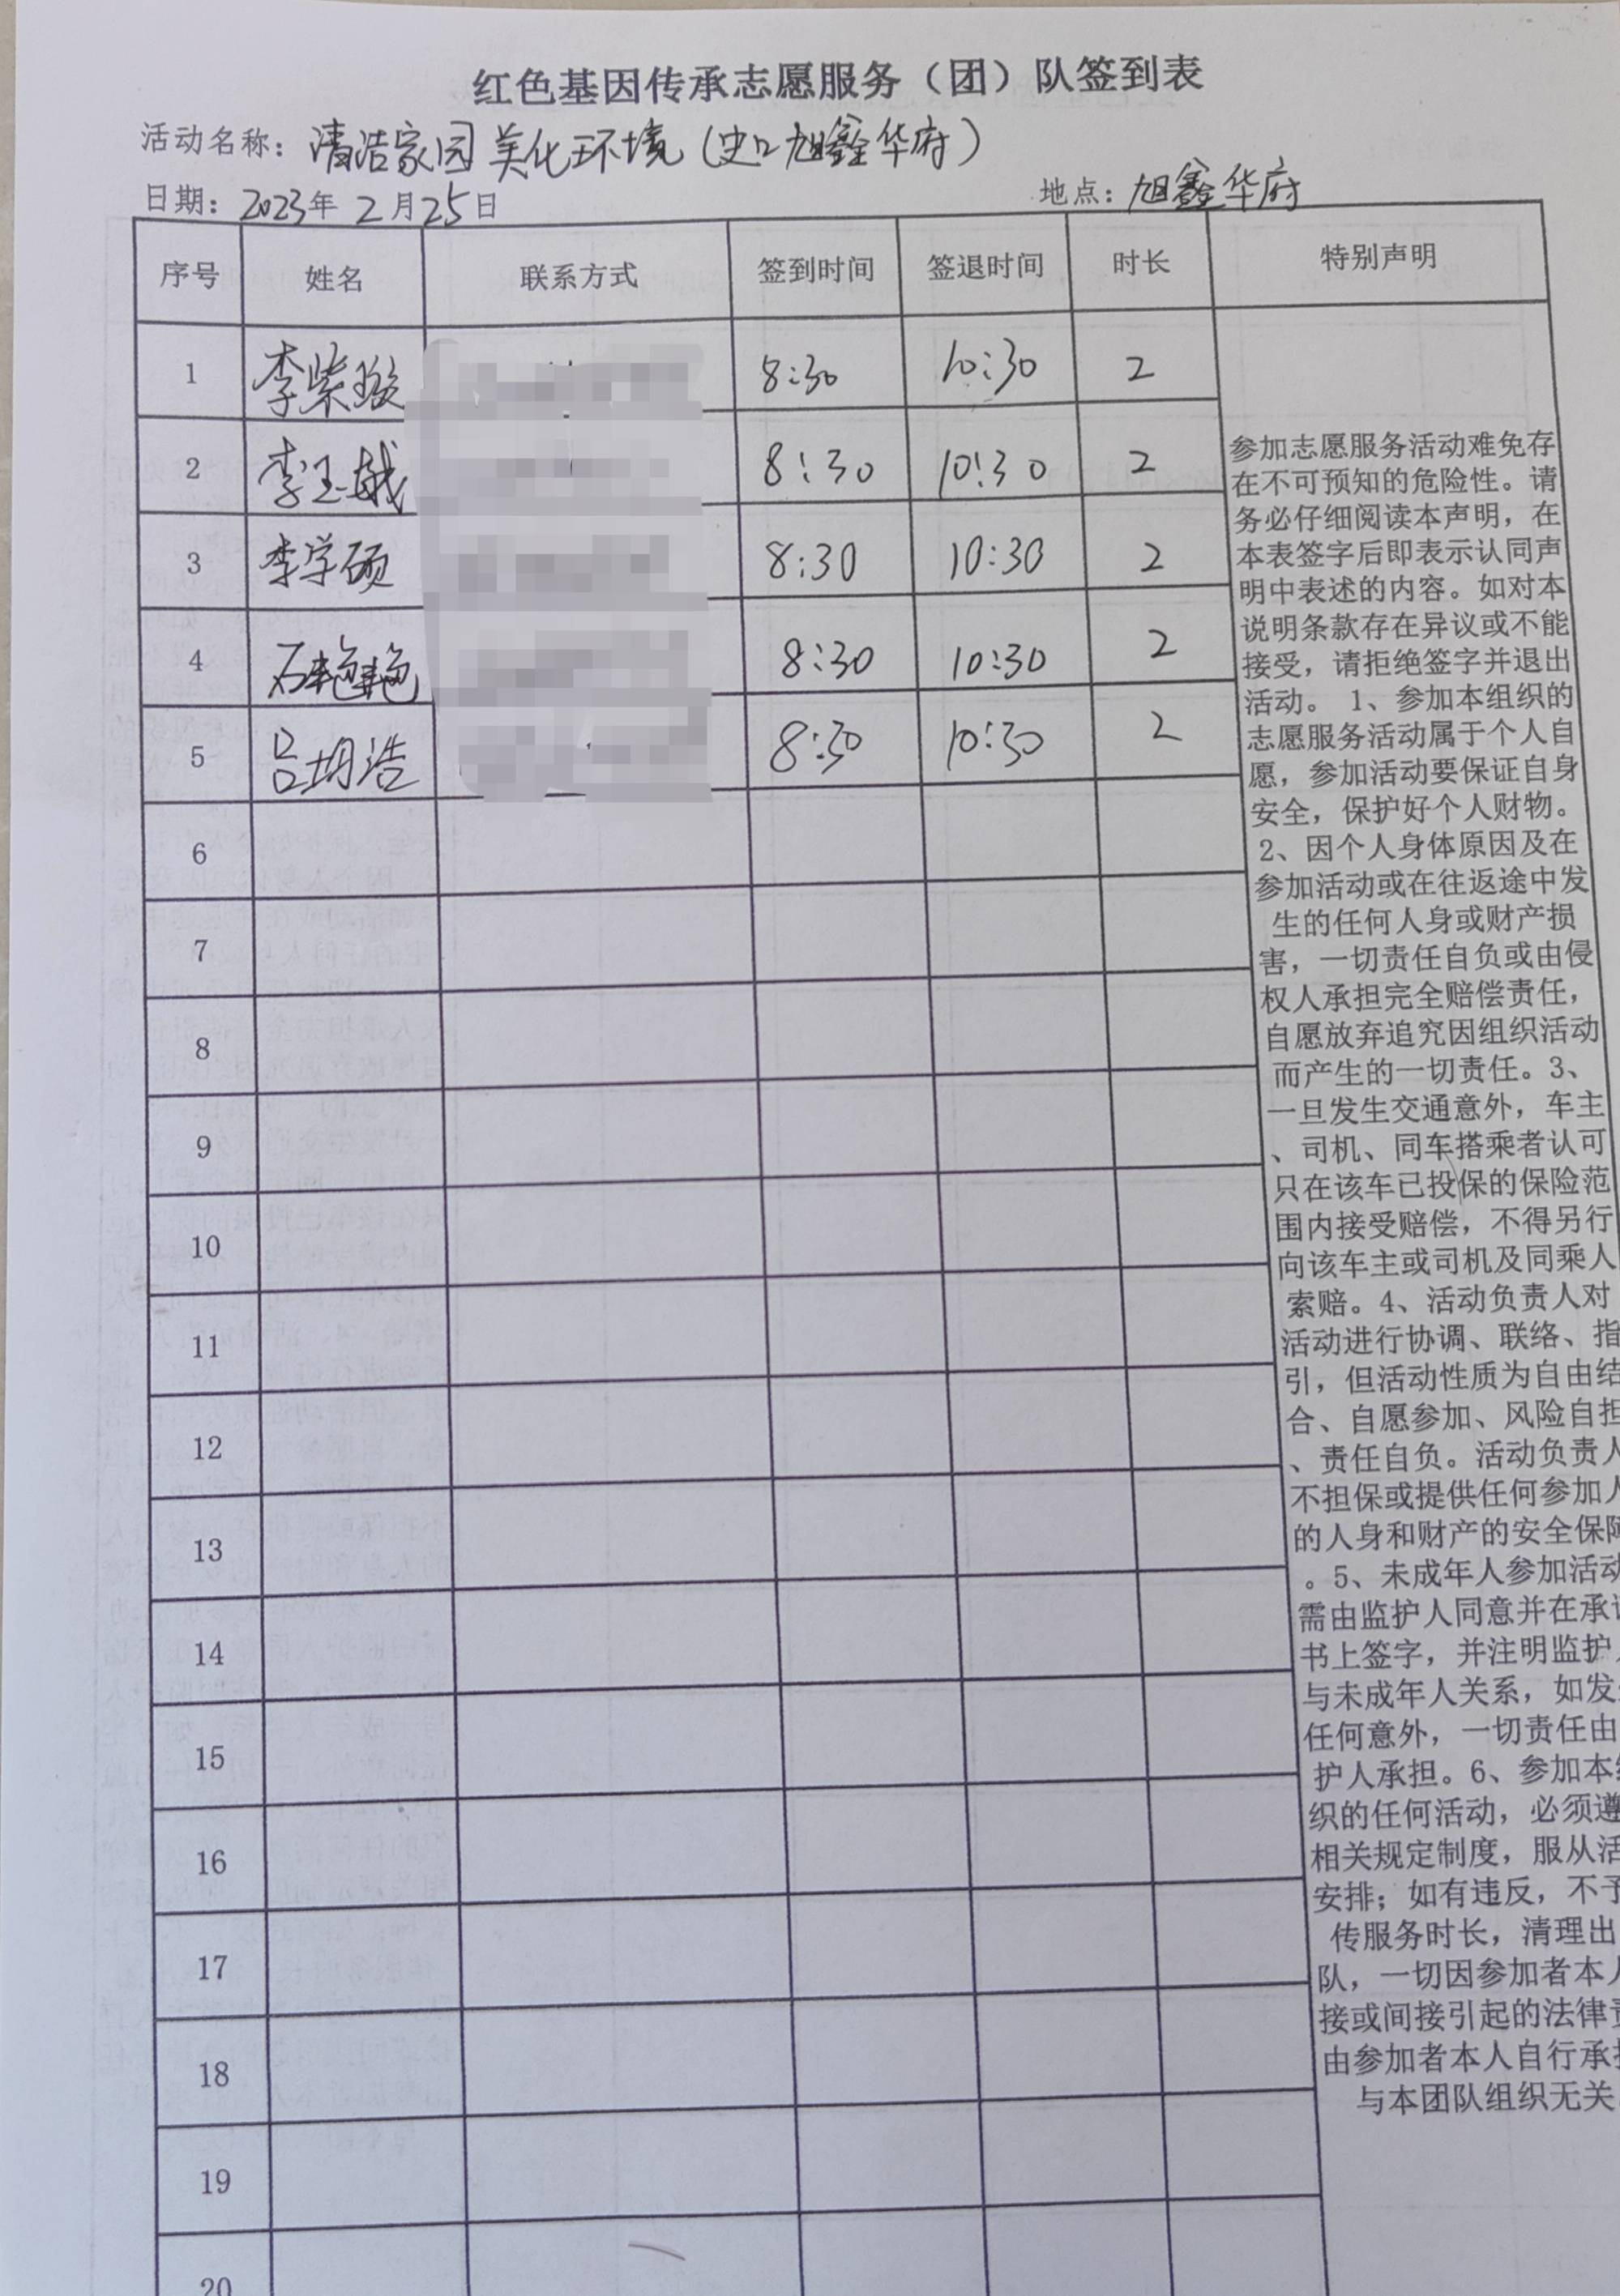 红色基因传承志愿服务（团）队签到表
活动名称：清洁家园 美化环境（史口旭鑫华府）
日期：2023年 2月25日 地点：旭鑫华府
序号 姓名 联系方式 签到时间 签退时间 时长 特别声明
1 李紫璇 8:30 10:30 2
2 李玉 8:30 10:30 2
3 李学硕 8:30 10:30 2
4 石艳艳 8:30 10:30 2
5 吕均浩 8:30 10:30 2
6
7
8
9
10
11
12
13
14
15
16
17
18
19
20
参加志愿服务活动难免存
在不可预知的危险性。请
务必仔细阅读本声明，在
本表签字后即表示认同声
明中表述的内容。如对本
说明条款存在异议或不能
接受，请拒绝签字并退出
活动。 1、参加本组织的
志愿服务活动属于个人自
愿，参加活动要保证自身
安全，保护好个人财物。
2、因个人身体原因及在
参加活动或在往返途中发
生的任何人身或财产损
害，一切责任自负或由侵
权人承担完全赔偿责任，
自愿放弃追究因组织活动
而产生的一切责任。3、
一旦发生交通意外，车主
、司机、同车搭乘者认可
只在该车已投保的保险范
围内接受赔偿，不得另行
向该车主或司机及同乘人
索赔。4、活动负责人对
活动进行协调、联络、指
引，但活动性质为自由结
合、自愿参加、风险自担
、责任自负。活动负责人
不担保或提供任何参加人
的人身和财产的安全保障
。5、未成年人参加活动
需由监护人同意并在承诺
书上签字，并注明监护人
与未成年人关系，如发生
任何意外，一切责任由
护人承担。6、参加本组
织的任何活动，必须遵
相关规定制度，服从活
安排；如有违反，不予
传服务时长，清理出
队，一切因参加者本人
接或间接引起的法律责
由参加者本人自行承担
与本团队组织无关